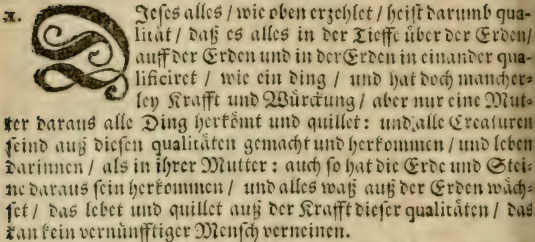 1. DIeses alles / wie oben erzehlet / heist darumb qua-
litát / daß es alles in der Tieffe über der Erden /
auff der Erden und in der Erden in einander qua-
lificiret / wie ein ding / und hat doch mancher-
ley Krafft und Würckung / aber nur eine Mut-
ter daraus alle Ding herkömt und quillet: und alle Creaturen
seind auß diesen qualitäten gemacht und herkommen / und leben
darinnen / als in ihrer Mutter: auch so hat die Erde und Stei-
ne daraus sein herkommen / und alles waß auß der Erden wäch-
set / das lebet und quillet auß der Krafft dieser qualitäten / das
kan kein vernünfftiger Mensch verneinen.